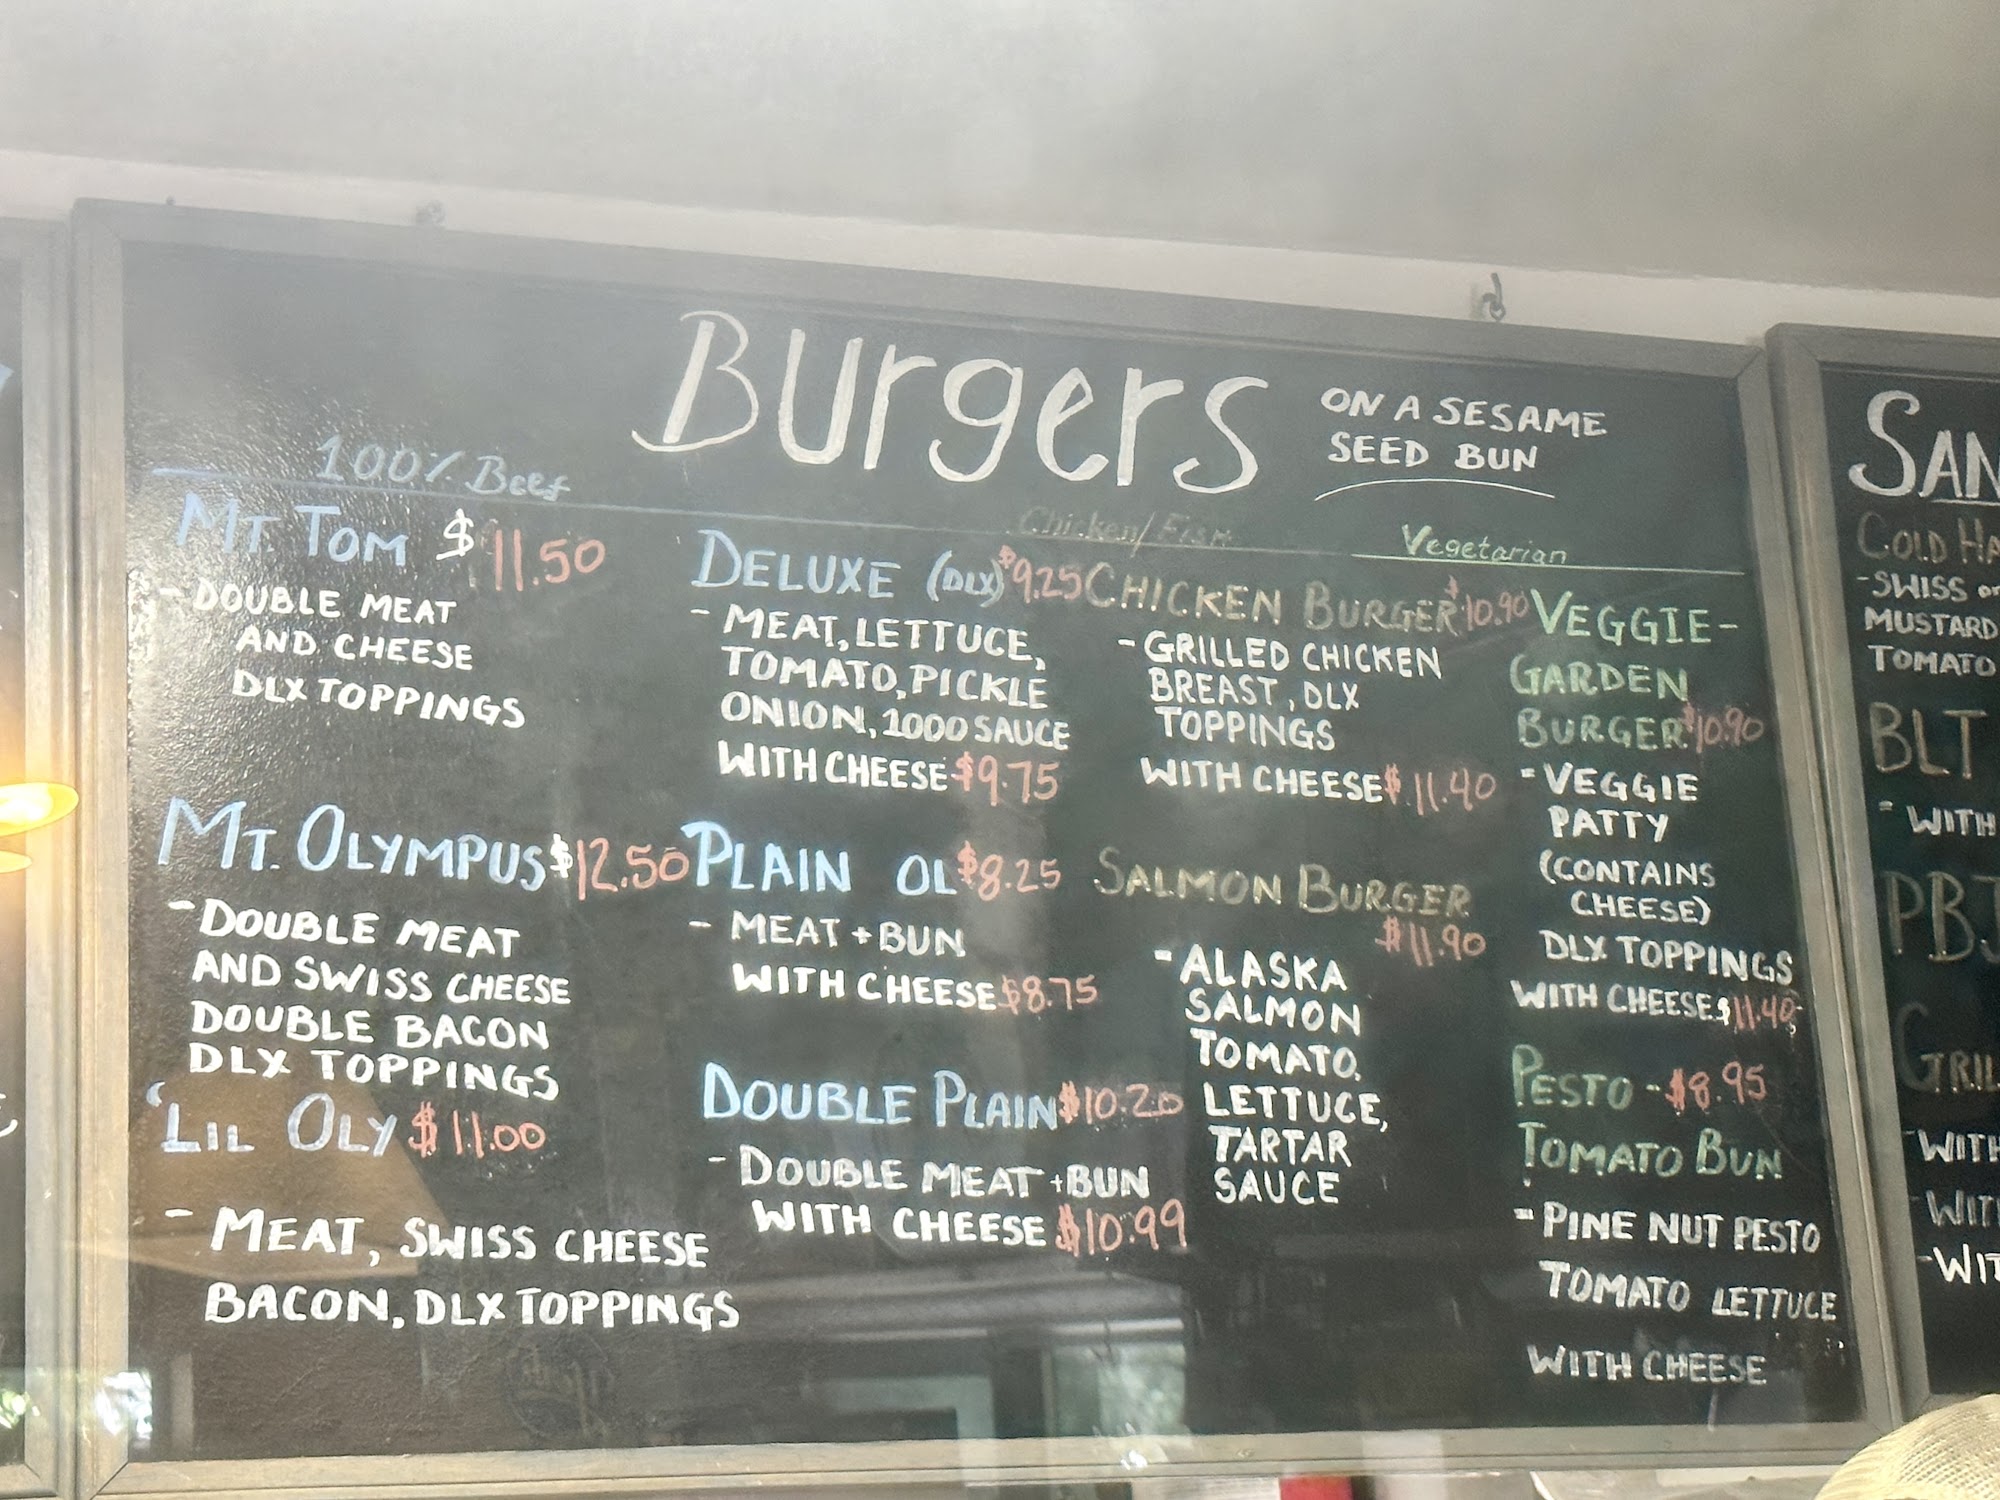 Burgers
ON A SESAME
SEED BUN
100% Beef
MT. TOM $11.50
- DOUBLE MEAT
AND CHEESE
DLX TOPPINGS
MT. OLYMPUS $12.50
- DOUBLE MEAT
AND SWISS CHEESE
DOUBLE BACON
DLX TOPPINGS
'LIL OLY $11.00
- MEAT, SWISS CHEESE
BACON, DLX TOPPINGS
DELUXE (DLX) $9.25
- MEAT, LETTUCE,
TOMATO, PICKLE
ONION, 1000 SAUCE
WITH CHEESE $9.75
PLAIN OL $8.25
- MEAT + BUN
WITH CHEESE $8.75
DOUBLE PLAIN $10.20
- DOUBLE MEAT + BUN
WITH CHEESE $10.99
Chicken/Fish
CHICKEN BURGER $10.90
- GRILLED CHICKEN
BREAST, DLX
TOPPINGS
WITH CHEESE $11.40
SALMON BURGER
$11.90
- ALASKA
SALMON
TOMATO,
LETTUCE,
TARTAR
SAUCE
Vegetarian
VEGGIE-
GARDEN
BURGER $10.90
- VEGGIE
PATTY
(CONTAINS
CHEESE)
DLX TOPPINGS
WITH CHEESE $11.40
PESTO - $8.95
TOMATO BUN
- PINE NUT PESTO
TOMATO LETTUCE
WITH CHEESE
SAN
COLD HA
- SWISS or
MUSTARD
TOMATO
BLT
- WITH
PBJ
GRIL
- WITH
- WITH
- WIT